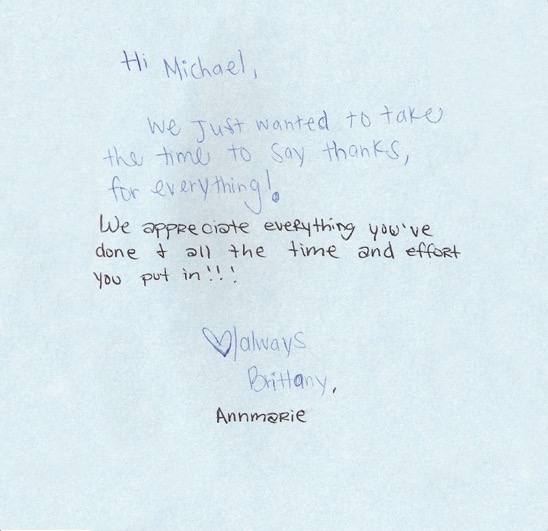 Hi Michael,
We just wanted to take
the time to say thanks,
for everything!
We appreciate everything you've
done + all the time and effort
you put in!!!
♡ always
Brittany,
Annmarie